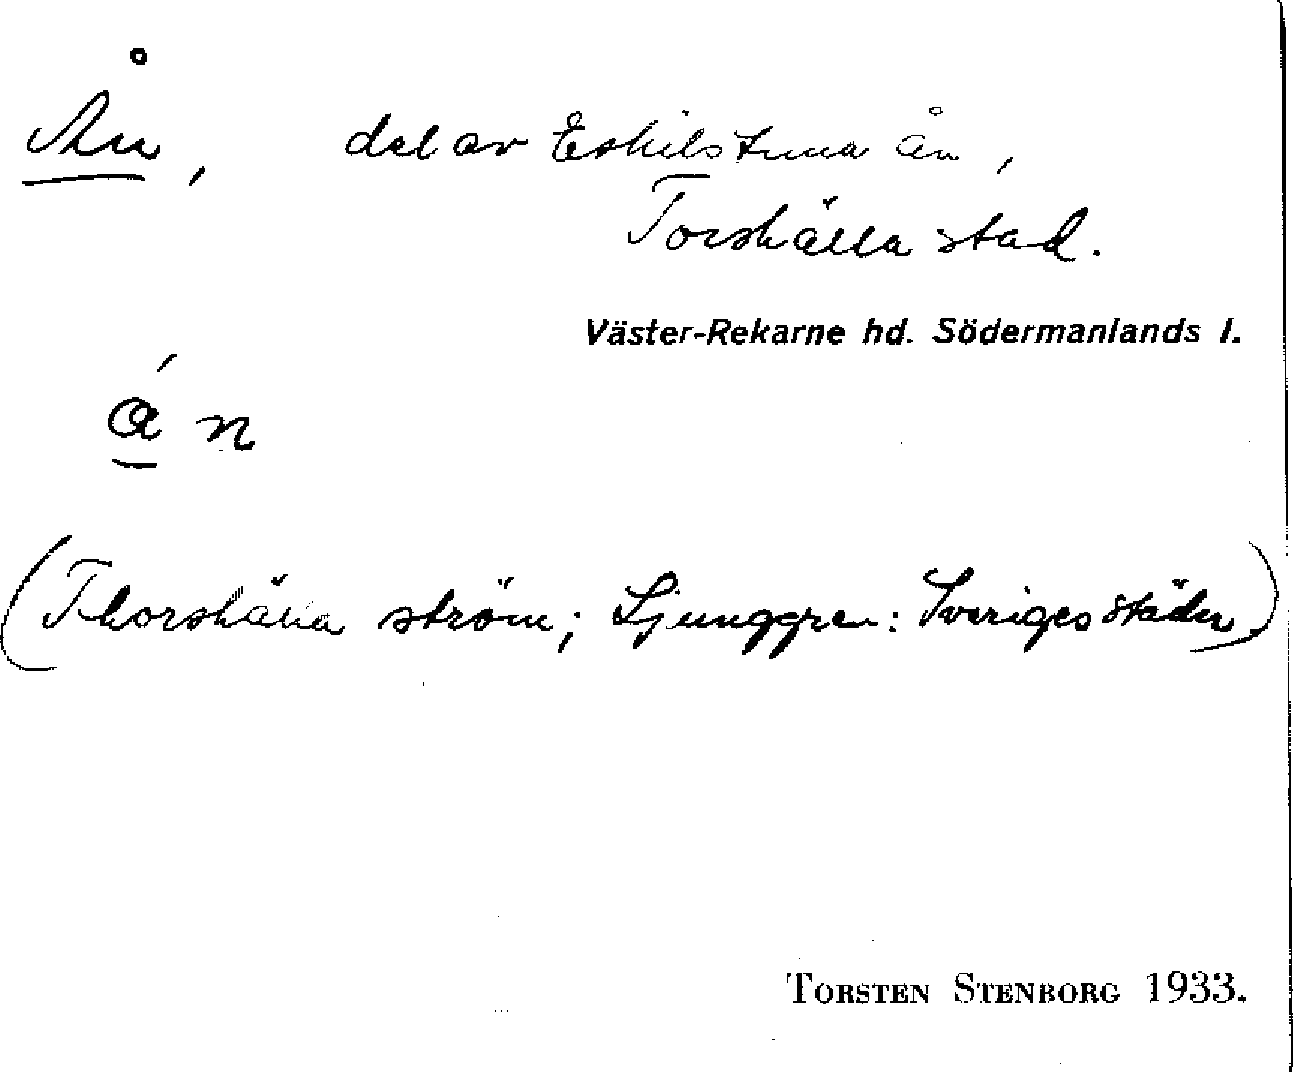 Ån, del av Eskilstuna ån,
Torshälla stad.
Väster-Rekarne hd. Södermanlands l.
á n
(Thorshälla ström; Ljunggren: Sveriges städer)
TORSTEN STENBORG 1933.